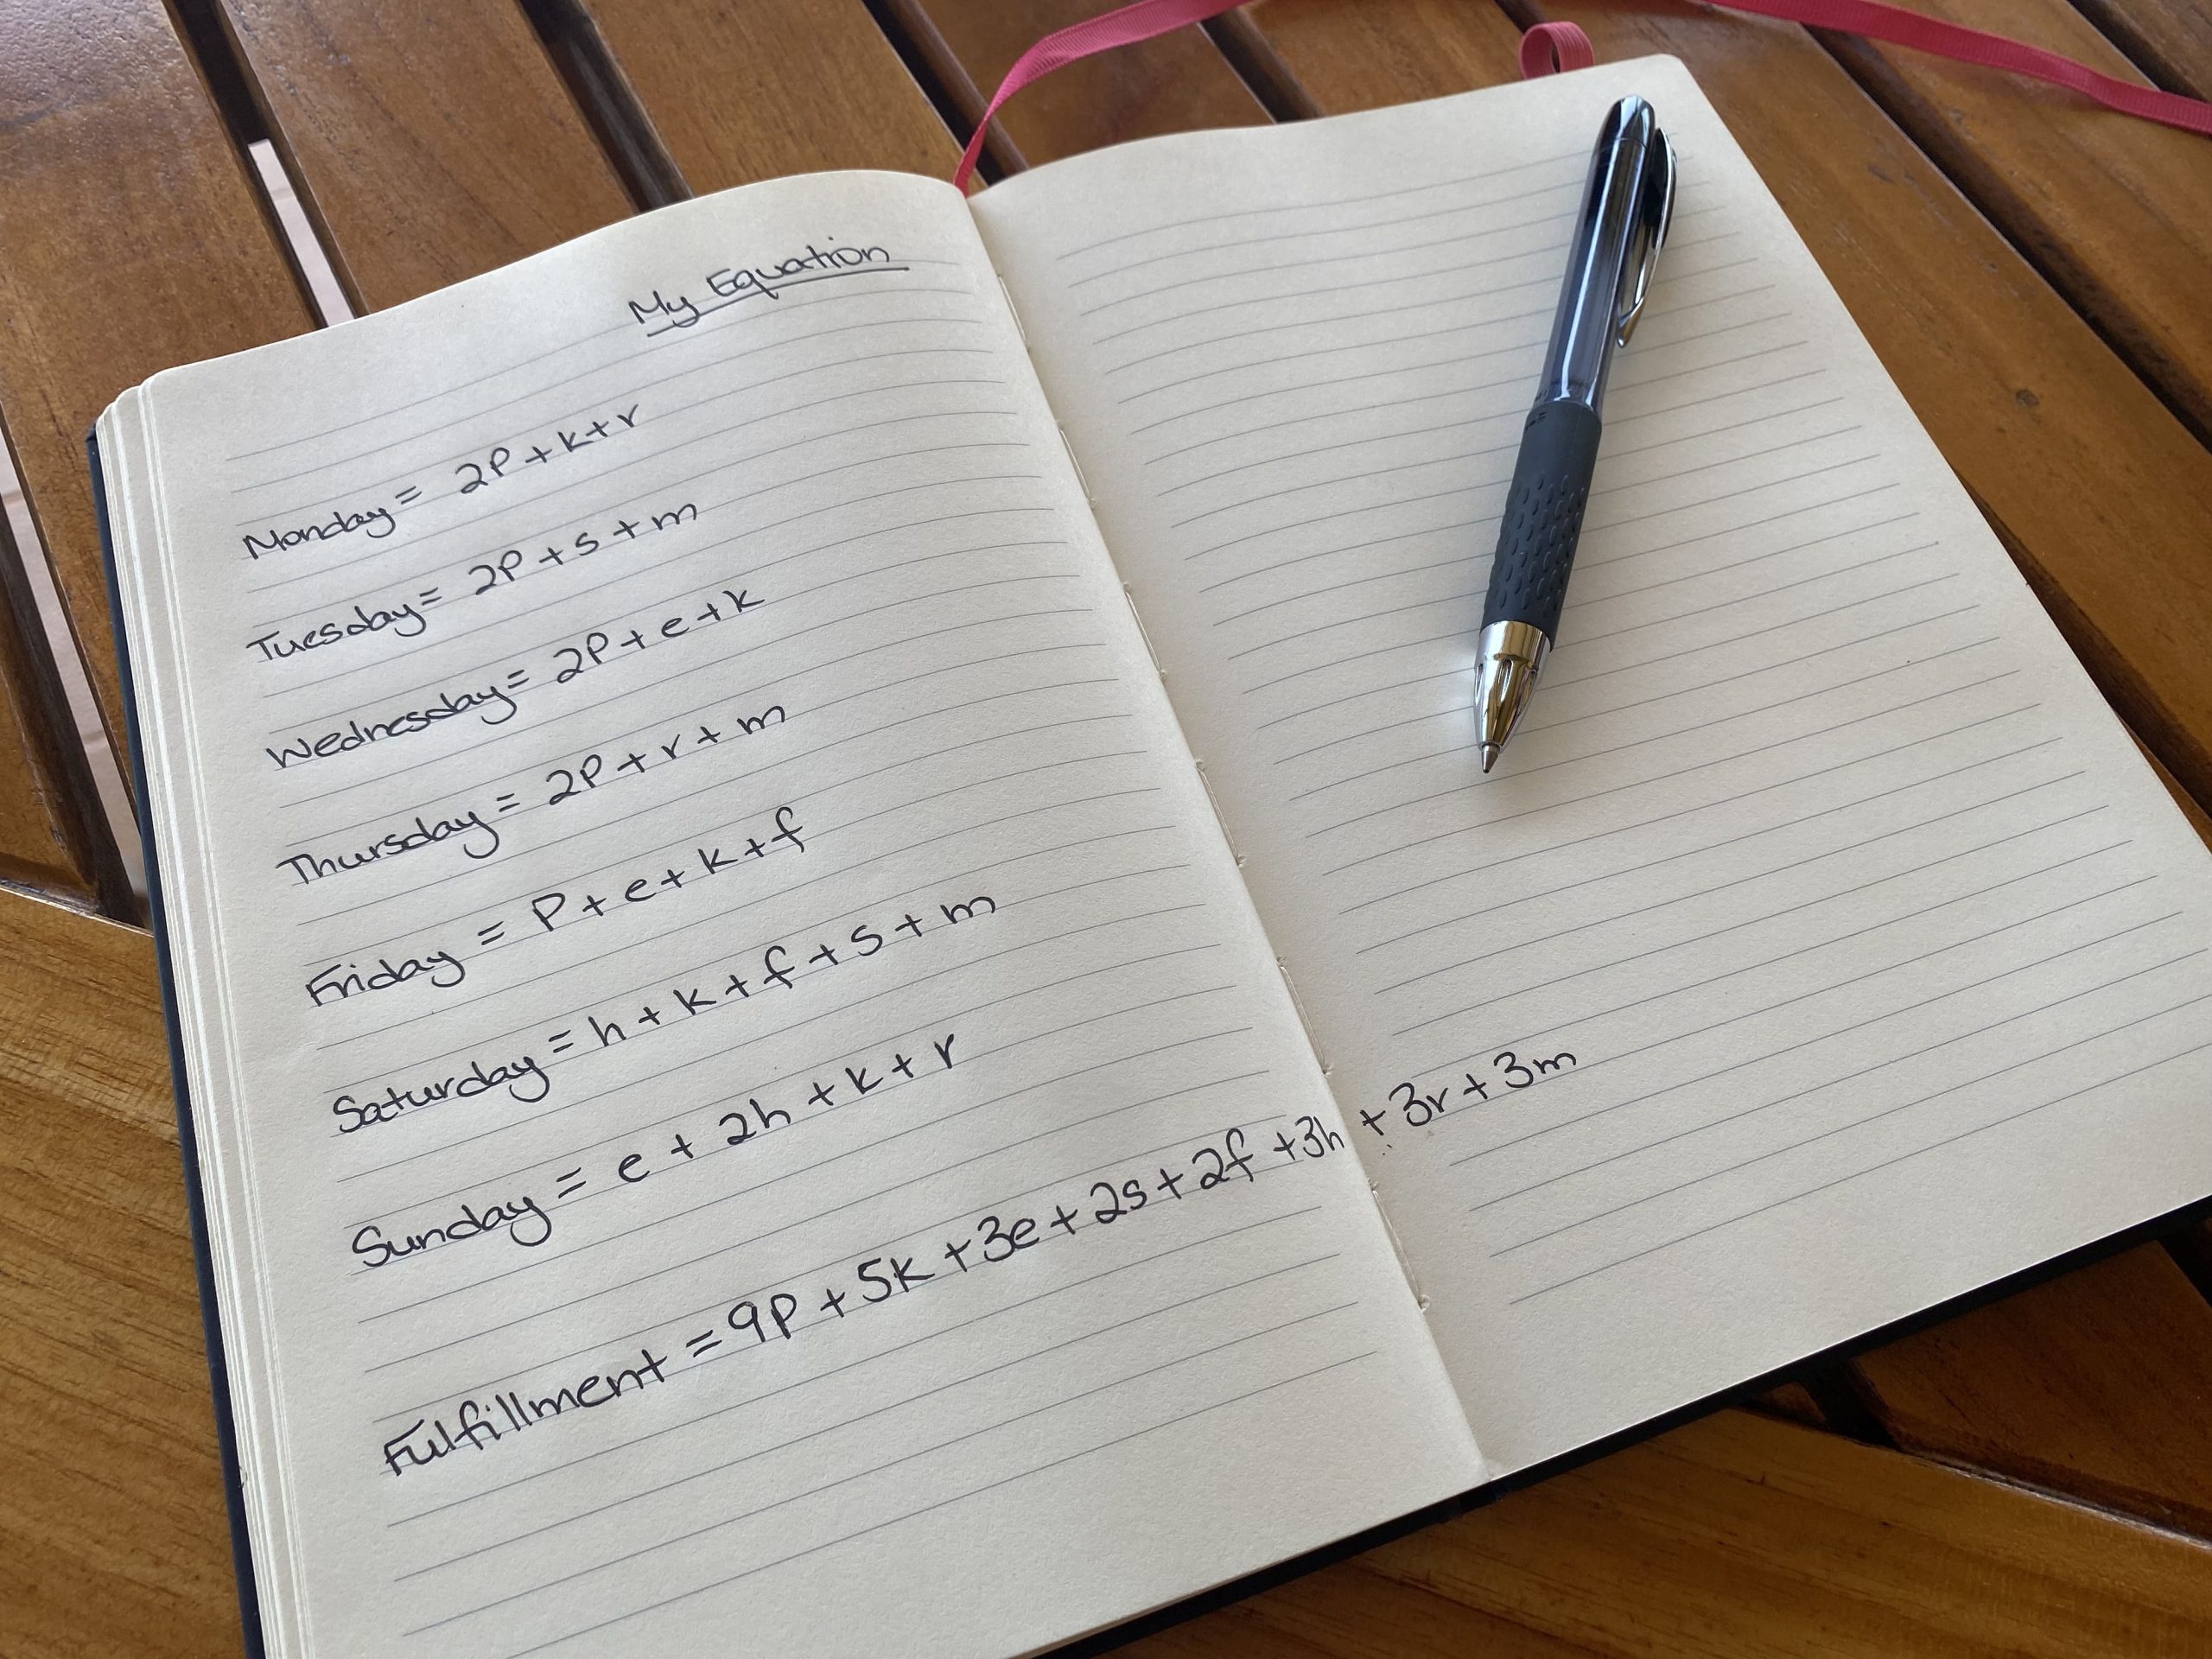 My Equation
Monday = 2P + k + r
Tuesday = 2P + s + m
Wednesday = 2P + e + k
Thursday = 2P + r + m
Friday = P + e + k + f
Saturday = h + k + f + s + m
Sunday = e + 2h + k + r
Fulfillment = 9P + 5k + 3e + 2s + 2f + 3h + 3r + 3m